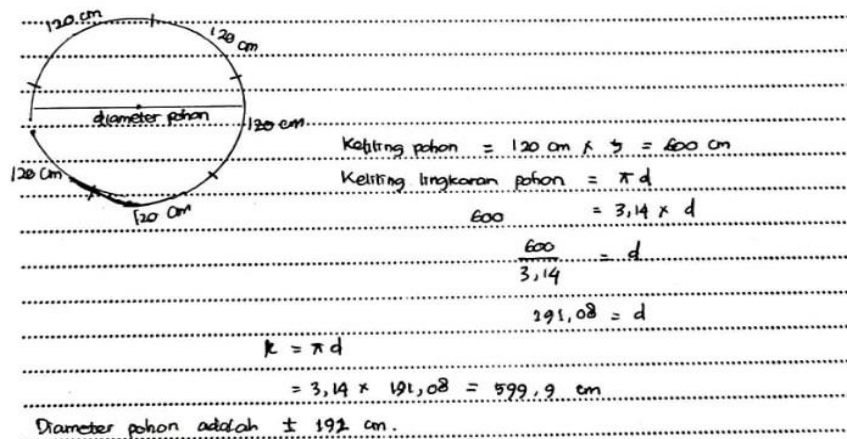 120 cm
120 cm
diameter pohon
120 cm
120 cm
120 cm
Keliling pohon = 120 cm x 5 = 600 cm
Keliling lingkaran pohon = π d
600 = 3,14 x d
600/3,14 = d
191,08 = d
k = π d
= 3,14 x 191,08 = 599,9 cm
Diameter pohon adalah ± 192 cm.